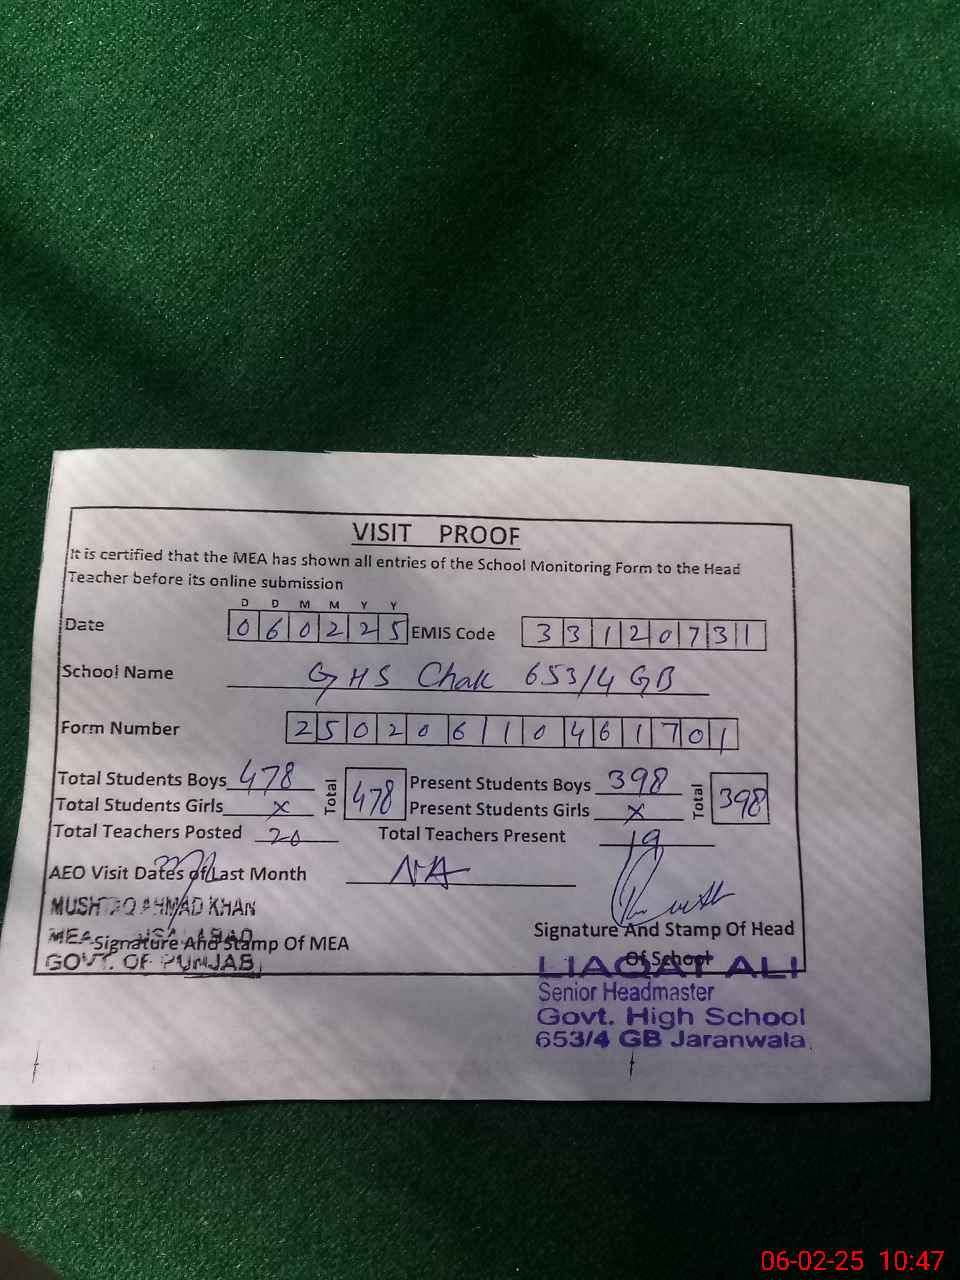 VISIT PROOF
It is certified that the MEA has shown all entries of the School Monitoring Form to the Head
Teacher before its online submission
D D M M Y Y
Date 060225 EMIS Code 33120731
School Name GHS Chak 653/4 GB
Form Number 25020610461701
Total Students Boys 478 Total 478 Present Students Boys 398 Total 398
Total Students Girls x Present Students Girls x
Total Teachers Posted 20 Total Teachers Present 19
AEO Visit Dates of Last Month NA
MUSHTAQ AHMAD KHAN
MEA
Signature And Stamp Of MEA Signature And Stamp Of Head
Of School
GOVT. OF PUNJAB
LIAQAT ALI
Senior Headmaster
Govt. High School
653/4 GB Jaranwala
06-02-25 10:47